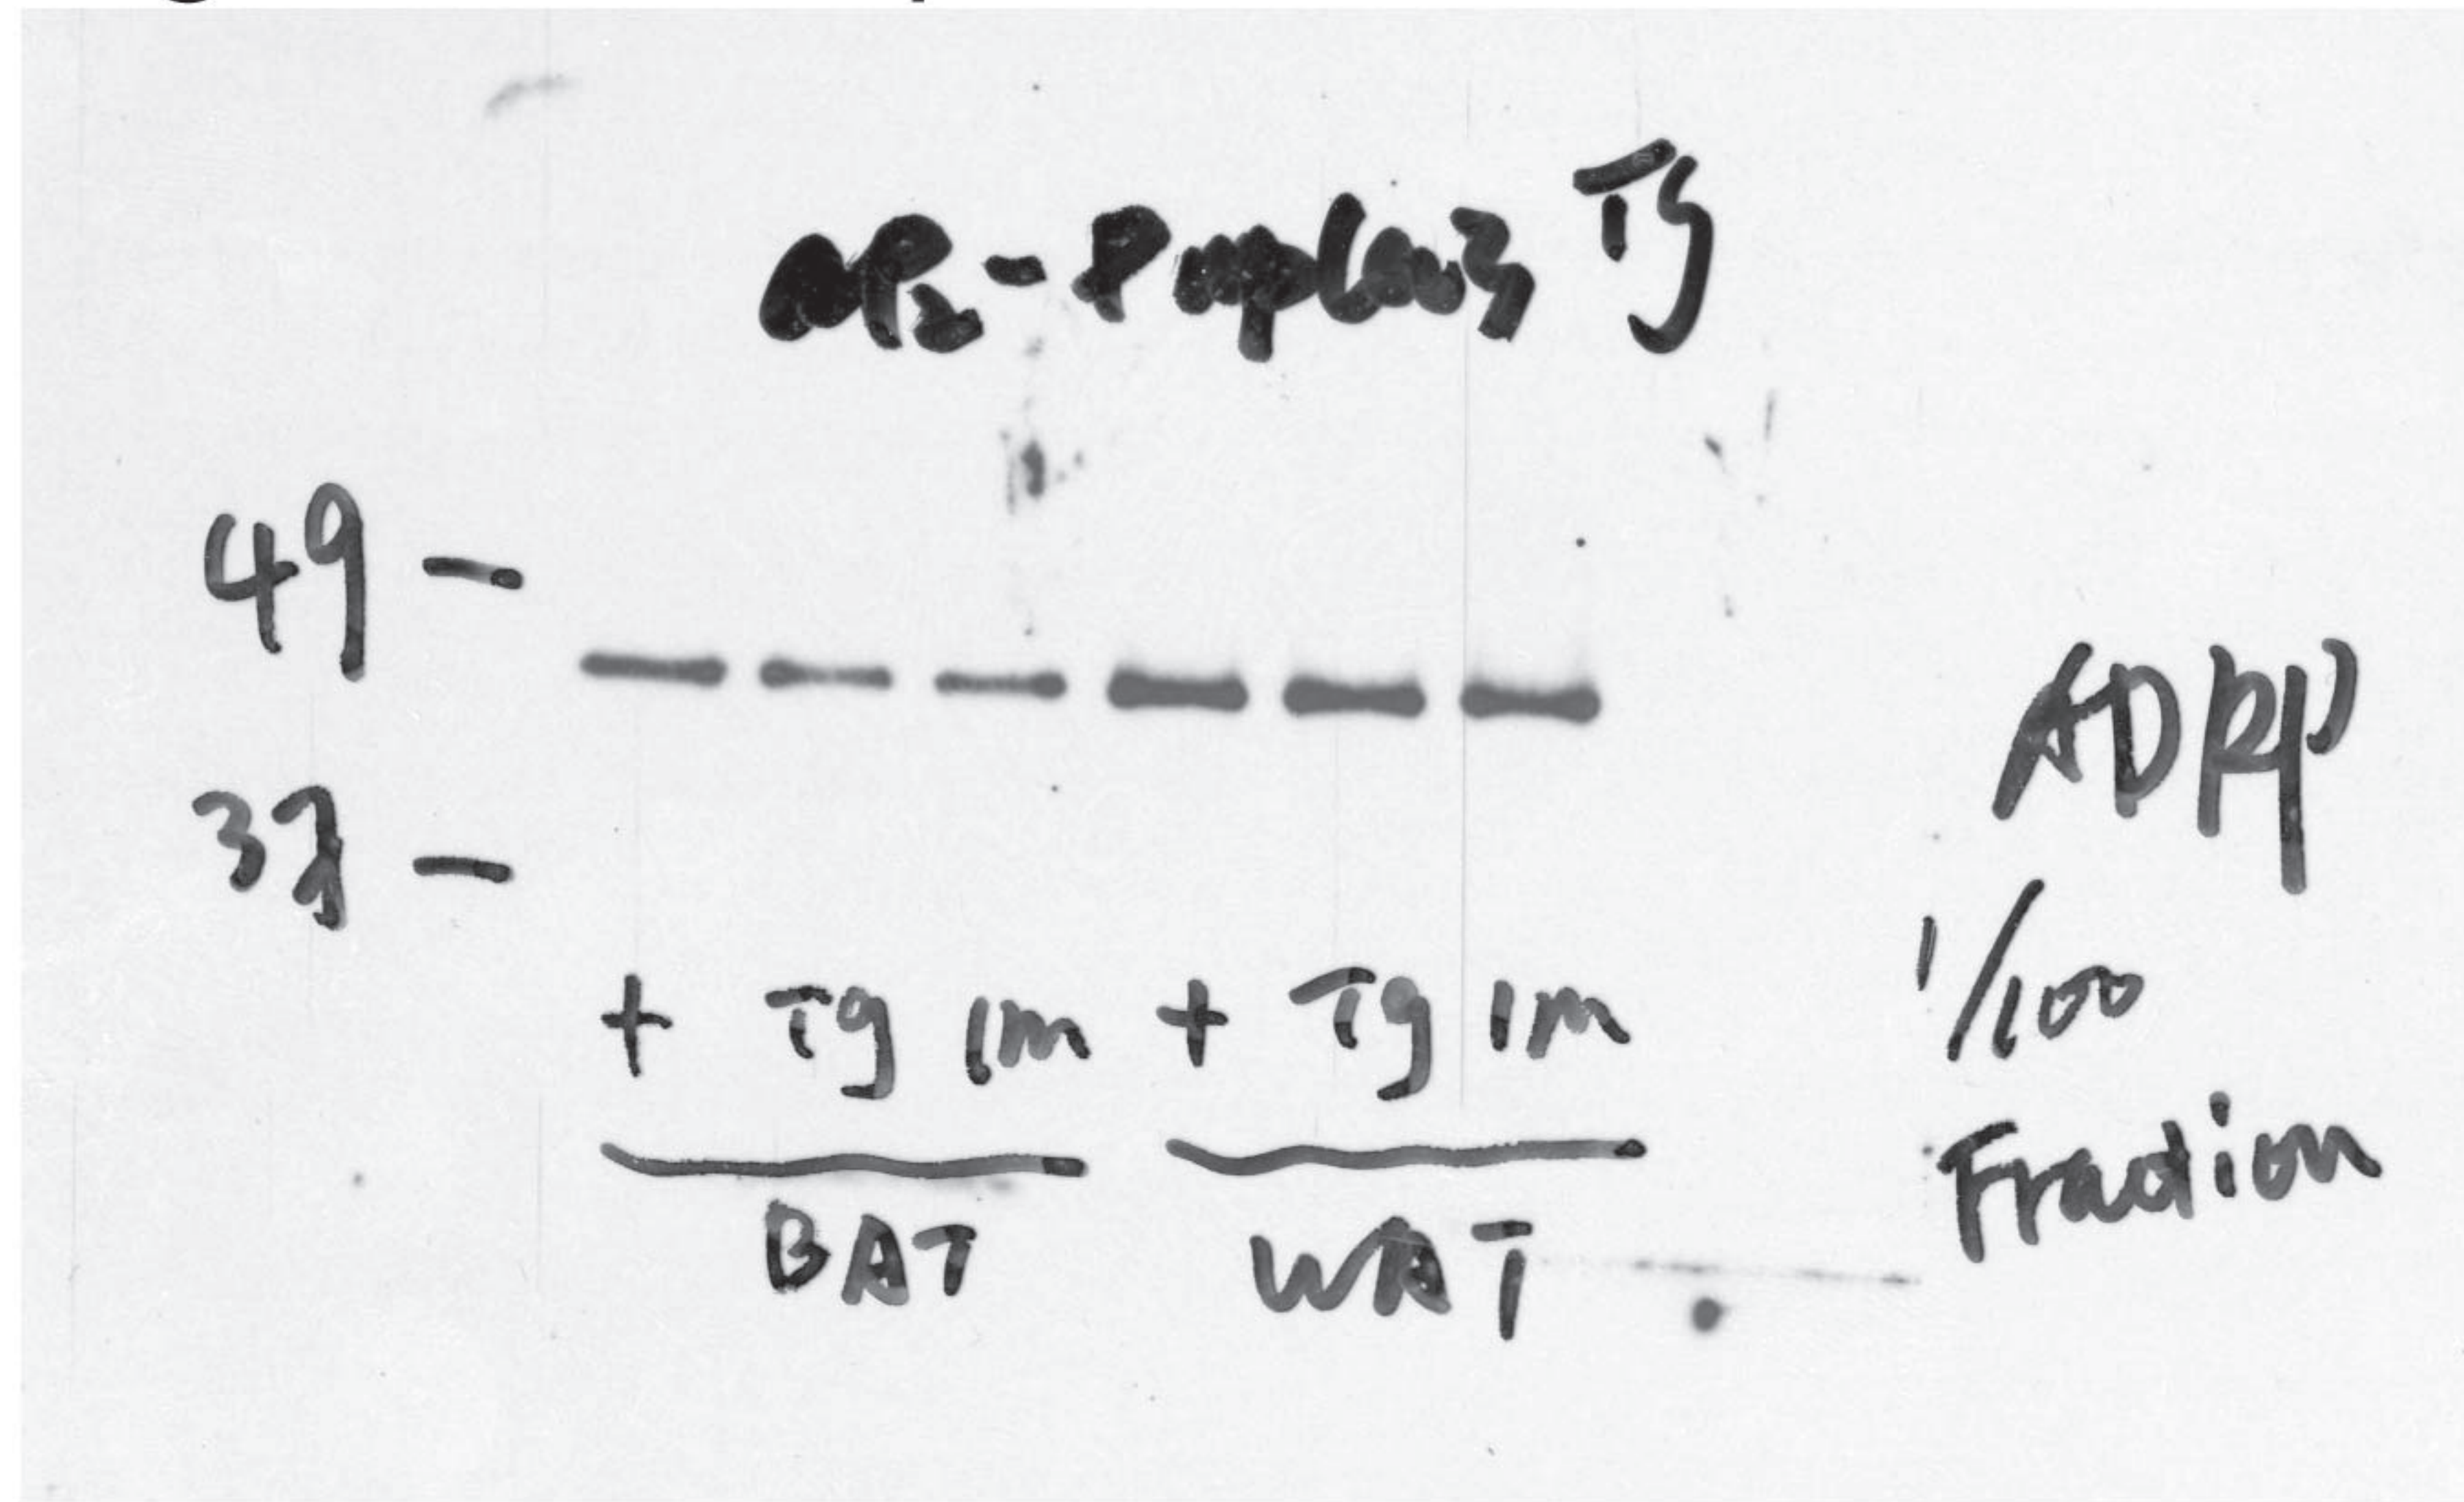 aP2-Pnpla3 Tg
49 -
37 -
ADRP
1/100
Fraction
+ Tg 1m + Tg 1m
BAT WAT